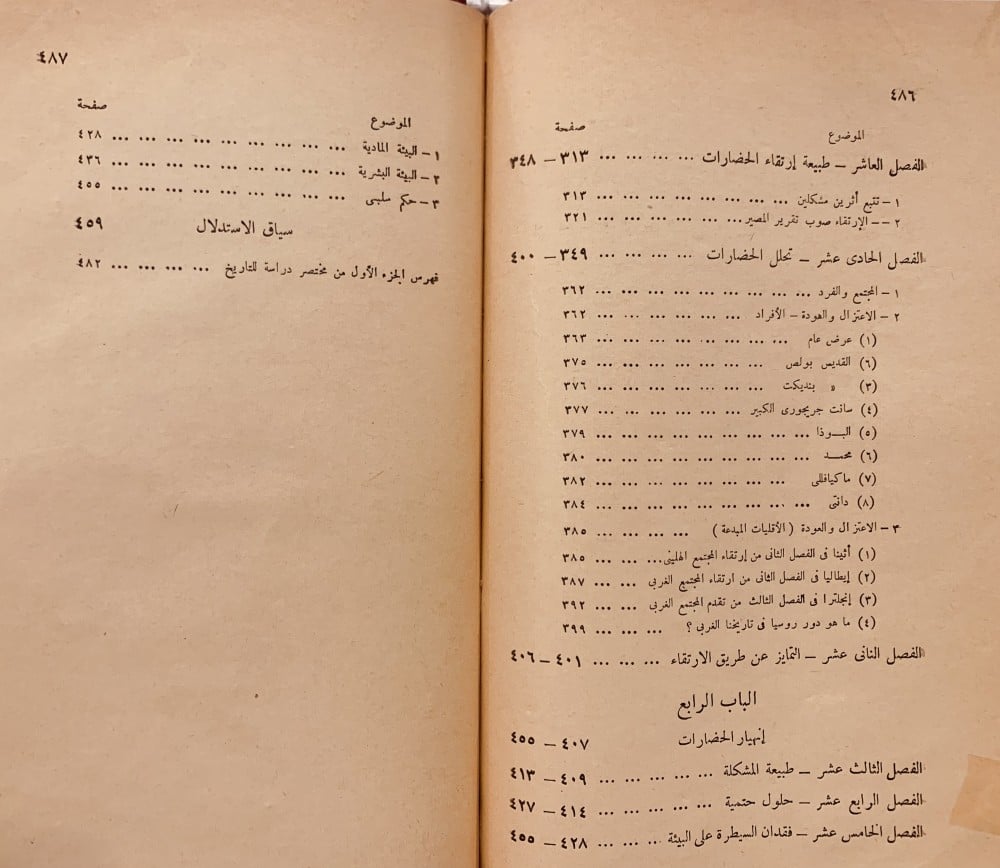 ٤٨٦
الموضوع صفحة
الفصل العاشر – طبيعة إرتقاء الحضارات ... ... ... ... ٣١٣ – ٣٤٨
١ – تتبع أثرين مشكلين ... ... ... ... ... ... ... ... ٣١٣
٢ –– الإرتقاء صوب تقرير المصير ... ... ... ... ... ... ٣٢١
الفصل الحادى عشر – تحلل الحضارات ... ... ... ... ٣٤٩ – ٤٠٠
١ – المجتمع والفرد ... ... ... ... ... ... ... ... ... ٣٦٢
٢ – الاعتزال والعودة – الأفراد ... ... ... ... ... ... ٣٦٢
(١) عرض عام ... ... ... ... ... ... ... ... ٣٦٣
(٦) القديس بولص ... ... ... ... ... ... ... ٣٧٥
(٣) » بنديكت ... ... ... ... ... ... ... ٣٧٦
(٤) سانت جريجورى الكبير ... ... ... ... ... ... ٣٧٧
(٥) البـــوذا ... ... ... ... ... ... ... ... ... ٣٧٩
(٦) محمـــد ... ... ... ... ... ... ... ... ... ٣٨٠
(٧) ماكيافللى ... ... ... ... ... ... ... ... ٣٨٢
(٨) دانتى ... ... ... ... ... ... ... ... ... ٣٨٤
٣ – الاعتزال والعودة (الأقليات المبدعة) ... ... ... ... ٣٨٥
(١) أثينا فى الفصل الثانى من إرتقاء المجتمع الهلينى ... ... ... ٣٨٥
(٢) إيطاليا فى الفصل الثانى من ارتقاء المجتمع الغربى ... ... ٣٨٧
(٣) إنجلترا فى الفصل الثالث من تقدم المجتمع الغربى ... ... ٣٩٢
(٤) ما هو دور روسيا فى تاريخنا الغربى ؟ ... ... ... ٣٩٩
الفصل الثانى عشر – التمايز عن طريق الارتقاء ... ... ... ٤٠١ – ٤٠٦
الباب الرابع
إنهيار الحضارات ٤٠٧ – ٤٥٥
الفصل الثالث عشر – طبيعة المشكلة ... ... ... ... ... ٤٠٩ – ٤١٣
الفصل الرابع عشر – حلول حتمية ... ... ... ... ... ٤١٤ – ٤٢٧
الفصل الخامس عشر – فقدان السيطرة على البيئة ... ... ... ٤٢٨ – ٤٥٥
٤٨٧
الموضوع صفحة
١ – البيئة المادية ... ... ... ... ... ... ... ... ... ٤٢٨
٢ – البيئة البشرية ... ... ... ... ... ... ... ... ... ٤٣٦
٣ – حكم سلبى ... ... ... ... ... ... ... ... ... ٤٥٥
سياق الاستدلال ٤٥٩
فهرس الجزء الأول من مختصر دراسة للتاريخ ... ... ... ... ٤٨٢